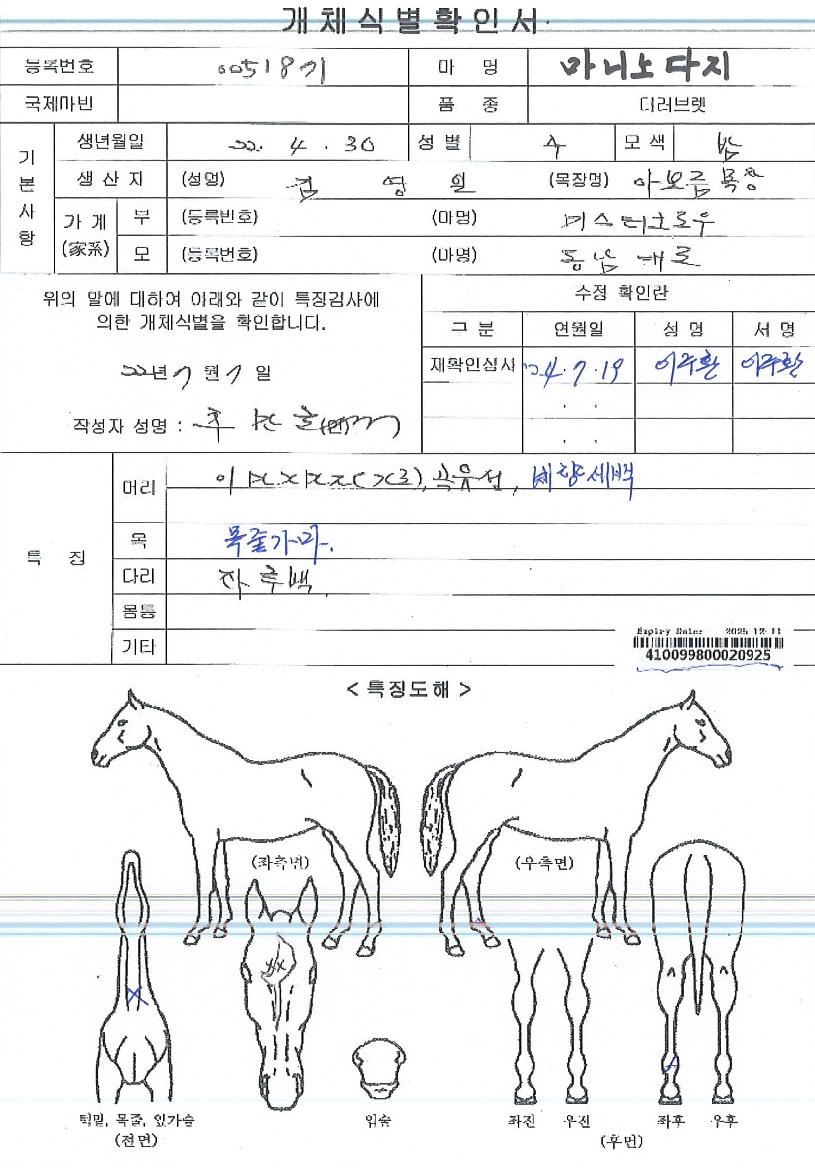 개체식별확인서
등록번호 0051871 마 명 마니노다지
국제마번 품 종 더러브렛
기본사항 생년월일 22. 4 . 30 성 별 수 모 색 밤
생 산 자 (성명) 김 영 일 (목장명) 아보름목장
가 계 (家系) 부 (등록번호) (마명) 미스터크로우
모 (등록번호) (마명) 동남
위의 말에 대하여 아래와 같이 특징검사에
의한 개체식별을 확인합니다.
22년 7 월 7 일
작성자 성명 :
수정 확인란
구 분 연월일 성 명 서 명
재확인심사 24. 7 . 19 이주환 이주환
. .
. .
특 징
머리 곡유성,
목 목줄가마.
다리 좌후백
몸통
기타
Expiry Date: 2025-12-11
410099800020925
< 특징도해 >
(좌측면) (우측면)
턱밑, 목줄, 앞가슴
(전면)
입술
좌전 우전 좌후 우후
(후면)